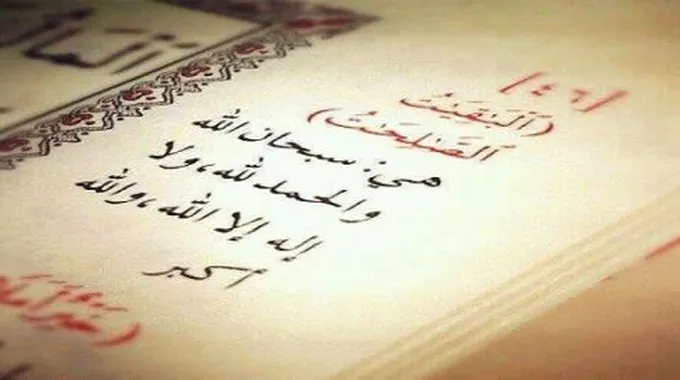 [٤٦]
(ٱلْبَٰقِيَٰتُ
ٱلصَّٰلِحَٰتُ)
هي: سبحان الله
والحمد لله، ولا
إله إلا الله، والله
أكبر
(خَيْرٌ أَمَلًا